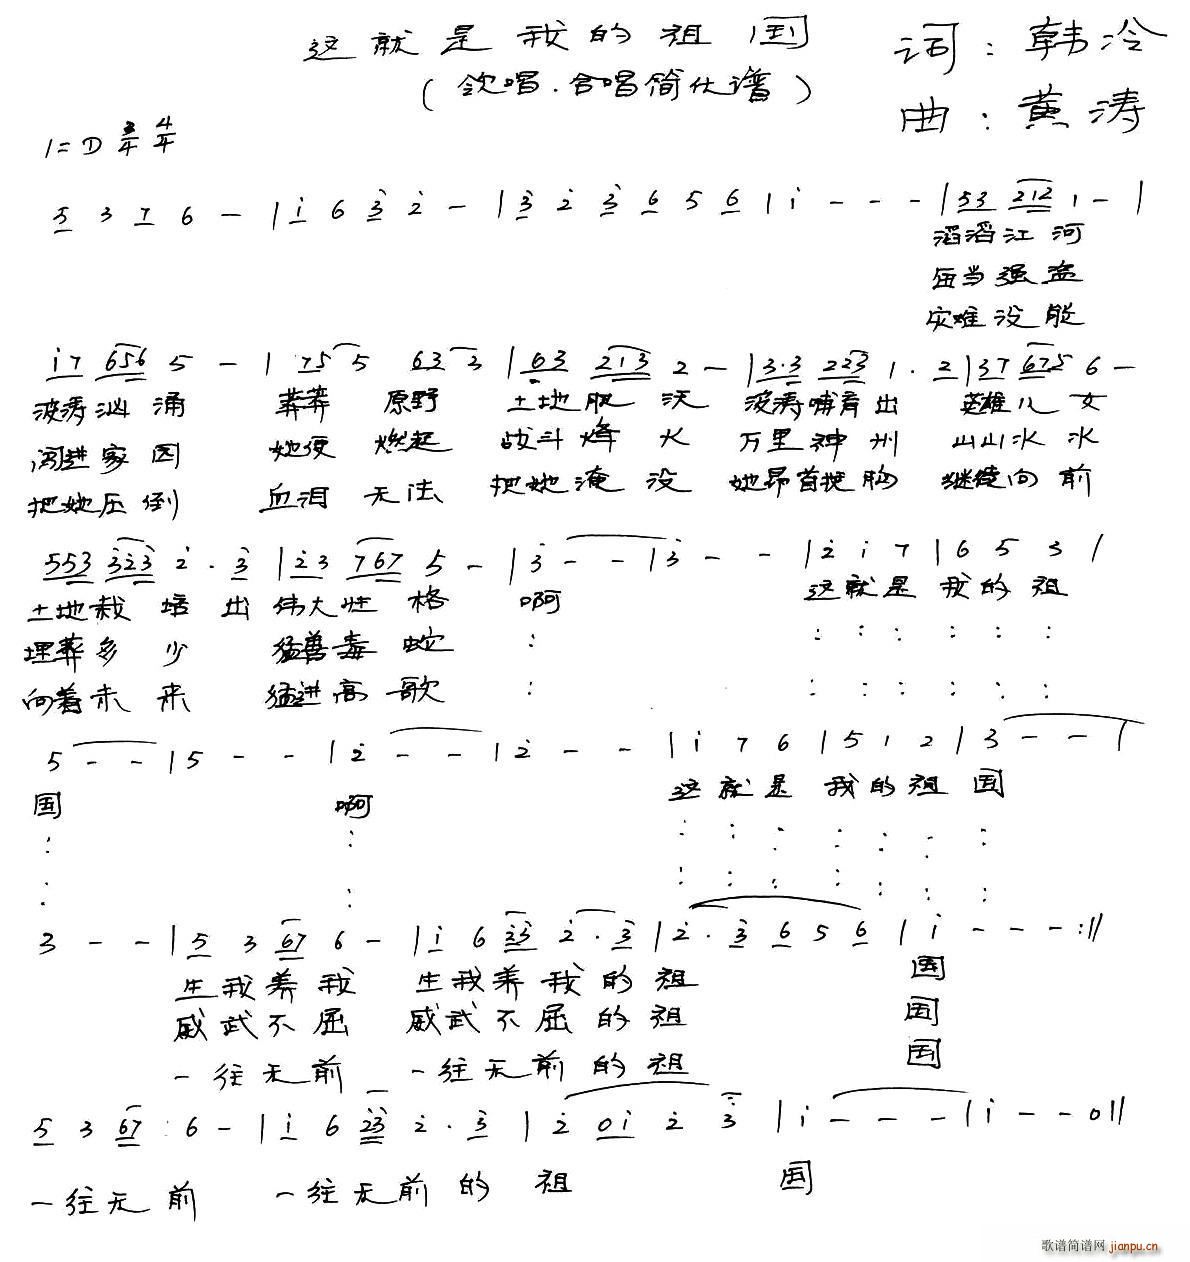 这就是我的祖国
(领唱.合唱简化谱)
词:韩冷
曲:黄涛
1=D 3/4 4/4
5 3 7 6 - | i 6 3 2 - | 3 2 3 6 5 6 | i - - - | 53 212 1 - |
滔滔江河
每当强盗
灾难没能
i7 656 5 - | 75 5 63 3 | 63 213 2 - | 3.3 223 1 . 2 | 37 675 6 -
波涛汹涌 莽莽原野 土地肥沃 波涛哺育出 英雄儿女
闯进家园 她便燃起 战斗烽火 万里神州 山山水水
把她压倒 血泪无法 把她淹没 她昂首挺胸 继续向前
553 323 2 . 3 | 23 767 5 - | 3 - - | 3 - - | 2 i 7 | 6 5 3 |
土地栽培出 伟大性格 啊 这就是我的祖
埋葬多少 猛兽毒蛇 : : : : : : :
向着未来 猛进高歌 : : : : : : :
5 - - | 5 - - | 2 - - | 2 - - | i 7 6 | 5 1 2 | 3 - - |
国 啊 这就是我的祖国
: : : : : : : : :
: : : : : : : : :
3 - - | 5 3 67 6 - | i 6 23 2 . 3 | 2 . 3 6 5 6 | i - - - :||
生我养我 生我养我的祖 国
威武不屈 威武不屈的祖 国
一往无前 一往无前的祖 国
5 3 67 6 - | i 6 23 2 . 3 | 2 0i 2 3 | i - - - | i - - 0 ||
一往无前 一往无前的祖 国
歌谱简谱网 jianpu.cn